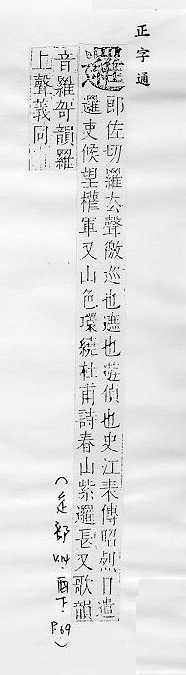 正字通
邏
郎佐切羅去聲徼巡也遮也遊偵也史江表傳昭烈日遣
邏吏候望權軍又山色環繞杜甫詩春山紫邏長又歌韻
音羅哿韻羅
上聲義同
(辵部 V.14. 酉下. P.69)